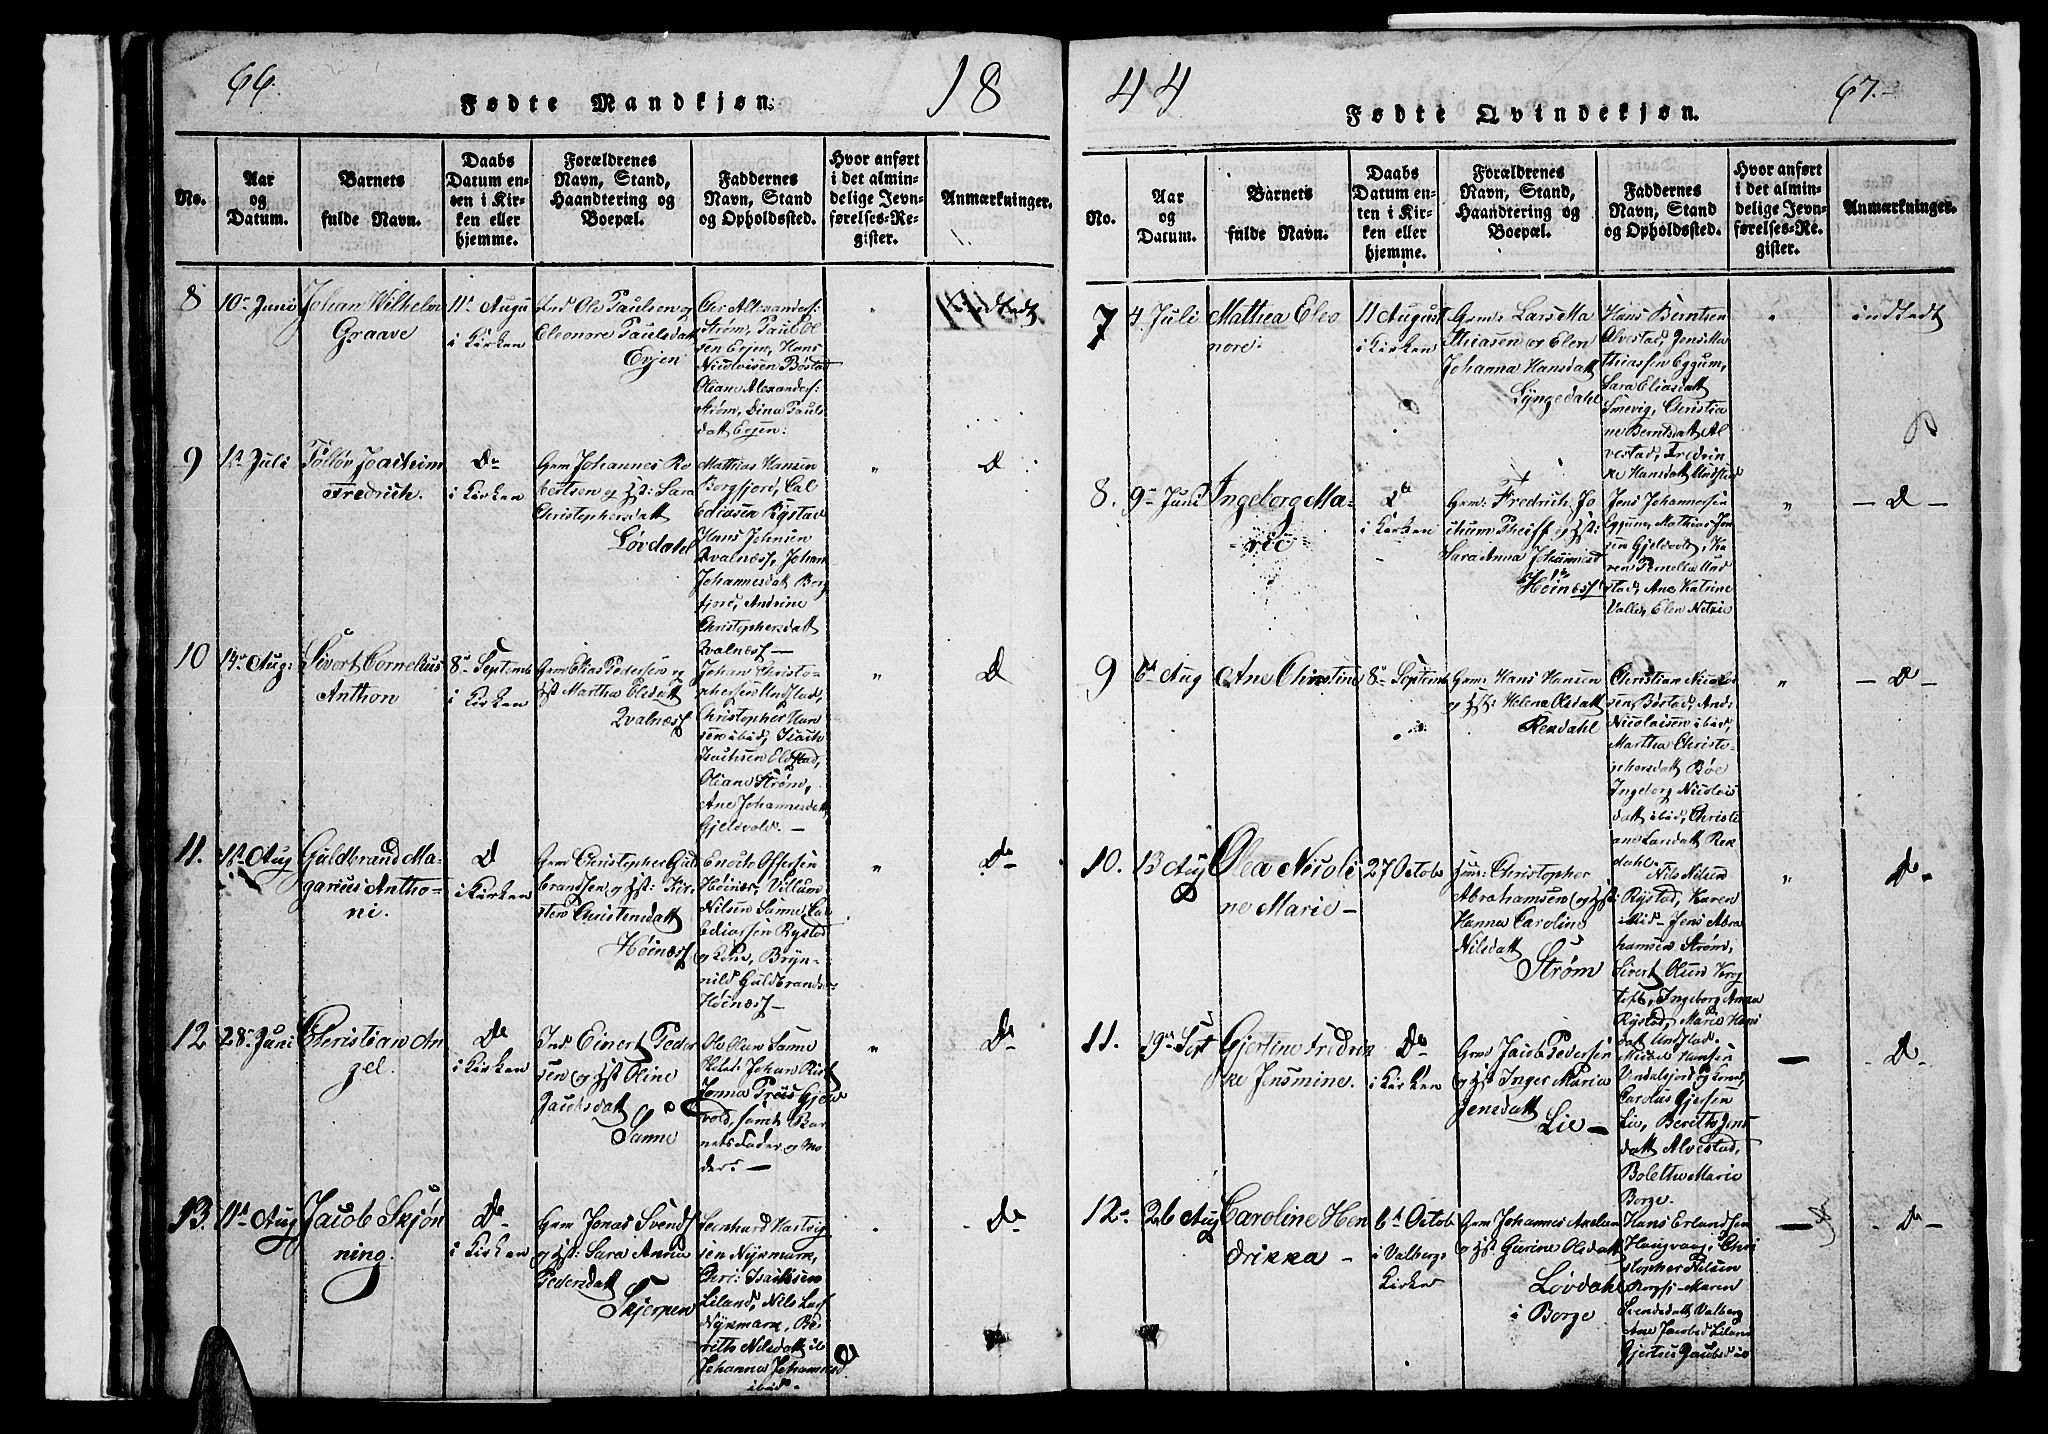 66.
Fødte Mandkjøn.
18
No.
Aar
og
Datum.
Barnets
fulde Navn.
Daabs
Datum en-
ten i Kir-
ken eller
hjemme.
Forældrenes
Navn, Stand,
Haandtering og
Boepæl.
Faddernes
Navn, Stand
og Opholdssted.
Hvor anført
i det almin-
delige Jevn-
førelses-Re-
gister.
Anmærkninger.
8
10de Juni
Johan Wilhelm
Graave
11te Augu
i Kirken
Ind Ole Paulsen og
Eleonore Paulsdatt
Evjen
Strøm, Paul Ol
sen Evjen, Hans
Nicolaisen Bøstad
Strøm, Dina Pauls
datt Evjen:
Indtedt
9
Juli
Tolløv Joachim
Fredrich.
Do
i Kirken
Grm Johannes Ro
bertsen og Hst: Sara
Christophersdatt
Løvdahl
Mathias Hansen
Borgfjord, Cal
Ediasen Rystad
Hans Johnsen
Qvalnæss, Johan
Johannesdatt Borg
fjord, Andrine
Christophersdatt
Qvalnæss —
D
10
14de Aug:
Sivert Cornelius
Anthon
8de Septemb
i Kirken
Grm Elias Pedersen og
Hst Martha Olsdatt
Qvalnæss
Johan Christo-
phersen Undstad,
Christopher Han
sen ibid, Isach
Isachsen Eldstad,
Oliane Strøm,
Ane Johannesdatt
Gjeldvold. —
D
11.
Aug
Guldbrand Ma-
garius Antho-
ni.
D
i Kirken
Grm Christopher Gul
brandsen og Hst: Kir-
sten Christensdatt
Høinæss
Offersen
Høinæs, Villum
Nilsen Sanne, Cal
Ediassen Rystad
og Kone, Bryn-
nild Guldbrands:
Høinæss —
Do
12
28de Juni
Christian An
gel.
Do
i Kirken
Ind Einert Peder
sen og Hst Oline
Jacobsdatt
Sanne
Ole Olsen Sanne
vold, samt Bar
nets Fader og Mo
der: —
Do
13.
11te Aug
Jacob Skjøn
ning.
Do
i Kirken
Grm Jonas Svends
og Hst: Sara Anna
Pedersdatt
Skjerpen
Leonhard Hartvig
sen Nykmark,
Chri: Isachsen
Liland, Nils Lars
Nykmark, Be
ritho Nilsdatt ib
Johanna Johannesd
ibid.
Do
44
Fødte Qvindekjøn.
67.
No.
Aar
og
Datum.
Barnets
fulde Navn.
Daabs
Datum en-
ten i Kir-
ken eller
hjemme.
Forældrenes
Navn, Stand,
Haandtering og
Boepæl.
Faddernes
Navn, Stand
og Opholdssted.
Hvor anført
i det almin-
delige Jevn-
førelses-Re-
gister.
Anmærkninger.
7
4 Juli
Mathea Eleo
nore:
11 August
i Kirken
Grm: Lars Ma
thiasen og Elen
Johanna Hansdatt
Lyngedahl
Hans Berntsen
Alvestad, Jens Ma
thiassen Eggum,
Sara Eliasdatt
Smevig, Christia
ne Berntsdatt Al
vestad, Fredrin
ke Hansdatt Undstad
indtedt
8.
9de Juni
Ingeborg Ma-
rie
Do
i Kirken
Grm: Fredrich Jo
achum Theiff og Hst:
Sara Anna Johannesd
Høinæss
Jens Johannesen
Eggum, Mathias Jon
sen Gjeldvold, Ka
ren Pernella Und
stad, Ane Katrine
Valle, Elen
— D —
9
6te Aug
Ane Christine
8de Septemb
Grm: Hans Hansen
og Hst: Helena Olsdatt
Rekdahl
Christian Nicolai
sen Bøstad, And:
Nicolaisen ibid,
Martha Christo-
phersdatt Bøe
Ingeborg Nicolais
datt ibid, Christi
ane Larsdatt Rek
dahl.
— D —
10.
13 Aug
Olea Nicoli
ne Marie —
27 Octobr
Christopher
Abrahamsen og Hst:
Hanna Caroline
Nilsdatt
Strøm
Nils Nilsen
Rystad, Karen
ibid — Jens Abra
hamsen Strøm,
Sivert Olsen Krog
toft, Ingeborg Anna
Rystad, Marie Hans
datt Undstad.
Do
11.
19de Sept
Gjertine Fredrik
ke Jensmine.
Do
i Kirken
Grm Jacob Pedersen
og Hst Inger Maria
Jensdatt
Lie —
Hansen
Vendelsfjord og Kone,
Carolus Gjersen
Lie, Beritho Jens
datt Alvestad,
Bolethe Marie
Borge.
—
D
12.
26 Aug
Caroline Hen
drikka —
6te Octob
i Valberg
Kirke
Grm Johannes Axelsen
og Hst Gurine Olsdatt
Løvdahl
i Borge
Hans Erlandsen
Haugvaag, Chri
stopher Nilsen
Borgfj — Maren
Svendsdatt Valberg
Ane Jacobsd Liland
Gjertrus Jacobsd ib
—
Do